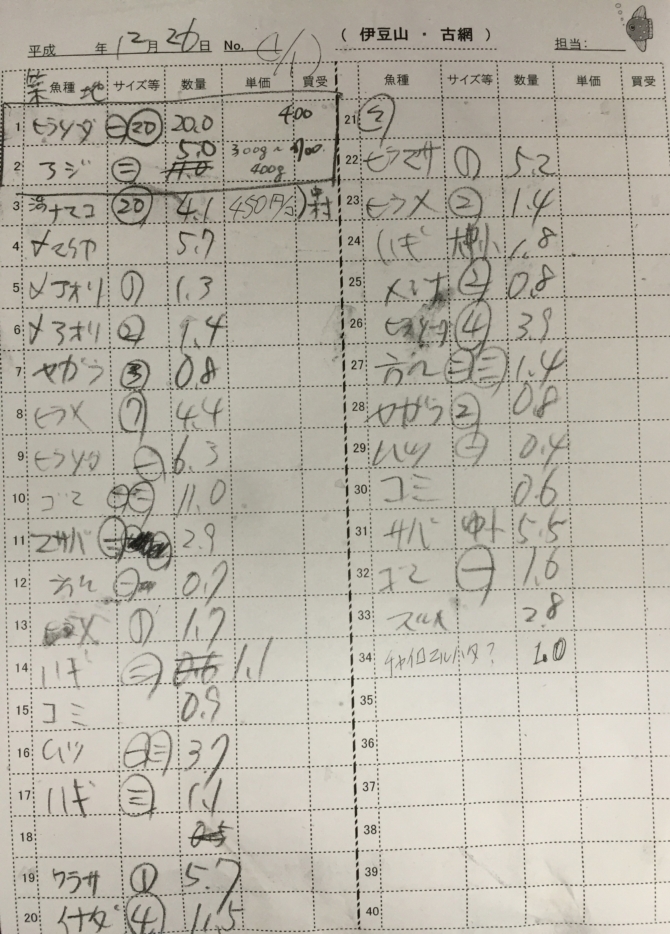 ( 伊豆山 ・ 古網 )
平成 年 12月 26日 No. 担当:
築地
魚種 サイズ等 数量 単価 買受
1 ヒラソーダ ㊀⑳ 20.0 400
2 アジ ㊂ 5.0 300g〜 400g 700
3 ナマコ ⑳ 4.1 450円/ 中村
4 5.7
5 アオリ ① 1.3
6 アオリ ② 1.4
7 ヤガラ ③ 0.8
8 ヒラメ ⑦ 4.4
9 ヒラソーダ ㊀ 6.3
10 ゴマ 11.0
11 マサバ 2.9
12 カマス ㊀ 0.7
13 ヒラメ ① 1.7
14 ハギ ㊂ 1.1
15 コミ 0.9
16 ムツ ㊀㊂ 3.7
17 ハギ ㊂ 1.1
18
19 ワラサ ① 5.7
20 イナダ ④ 11.5
魚種 サイズ等 数量 単価 買受
21
22 ヒラマサ ① 5.2
23 ヒラメ ② 1.4
24 ハギ 1.8
25 メジナ ② 0.8
26 ④ 3.9
27 ㊂ 1.4
28 ヤガラ ② 0.8
29 ムツ ㊀ 0.4
30 コミ 0.6
31 サバ 中小 5.5
32 ゴマ ㊀ 1.6
33 2.8
34 チャイロマルハタ? 1.0
35
36
37
38
39
40